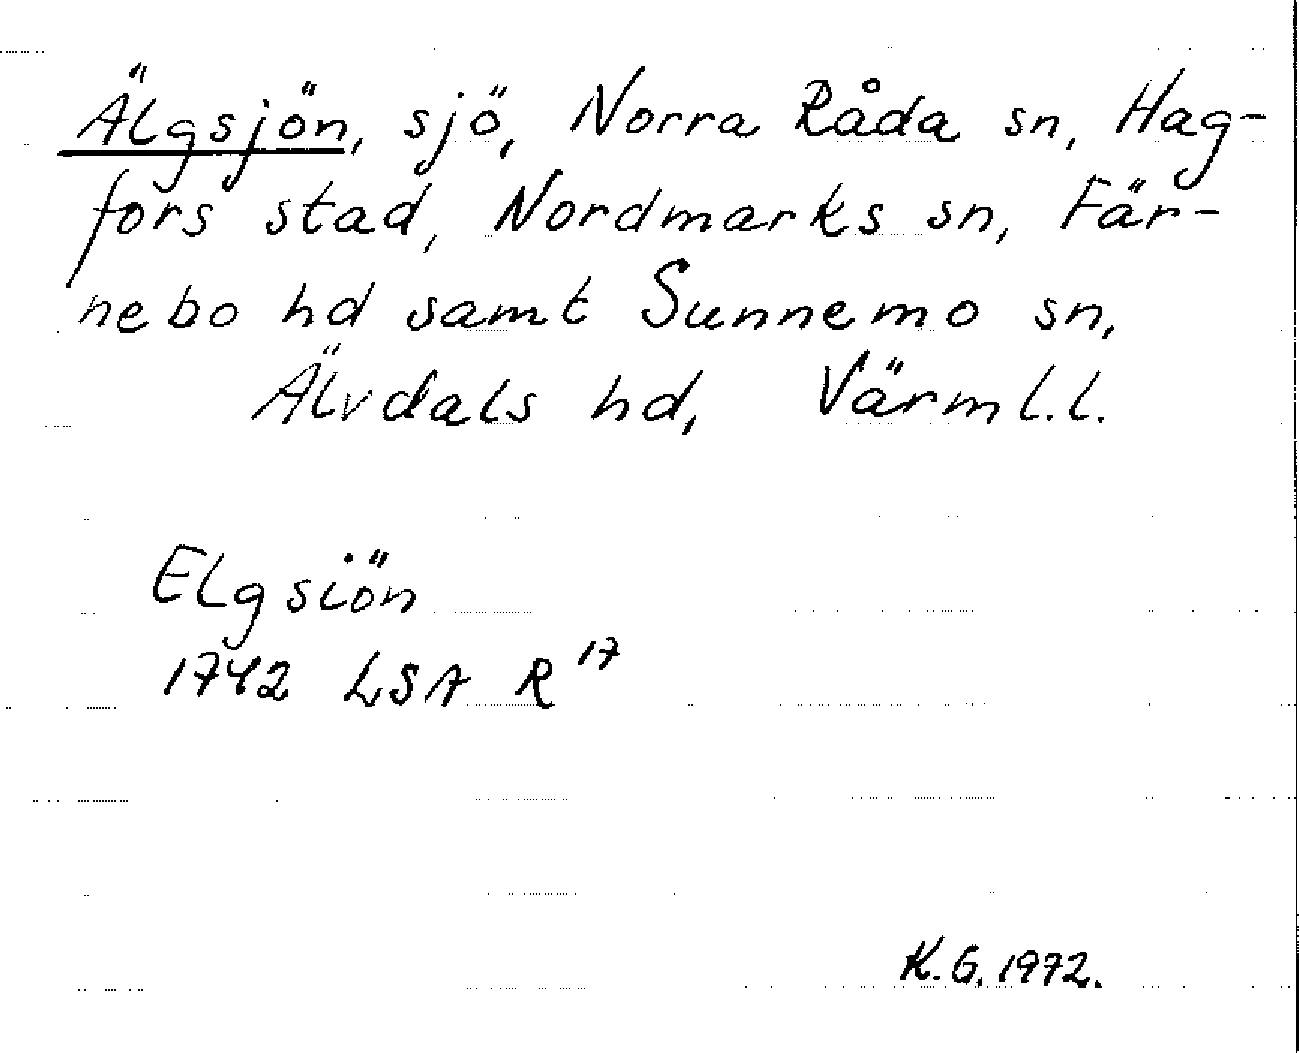 Älgsjön, sjö, Norra Råda sn, Hag-
fors stad, Nordmarks sn, Fär-
nebo hd samt Sunnemo sn,
Älvdals hd, Värml. l.
Elgsiön
1742 LSA R 17
K. G. 1972.